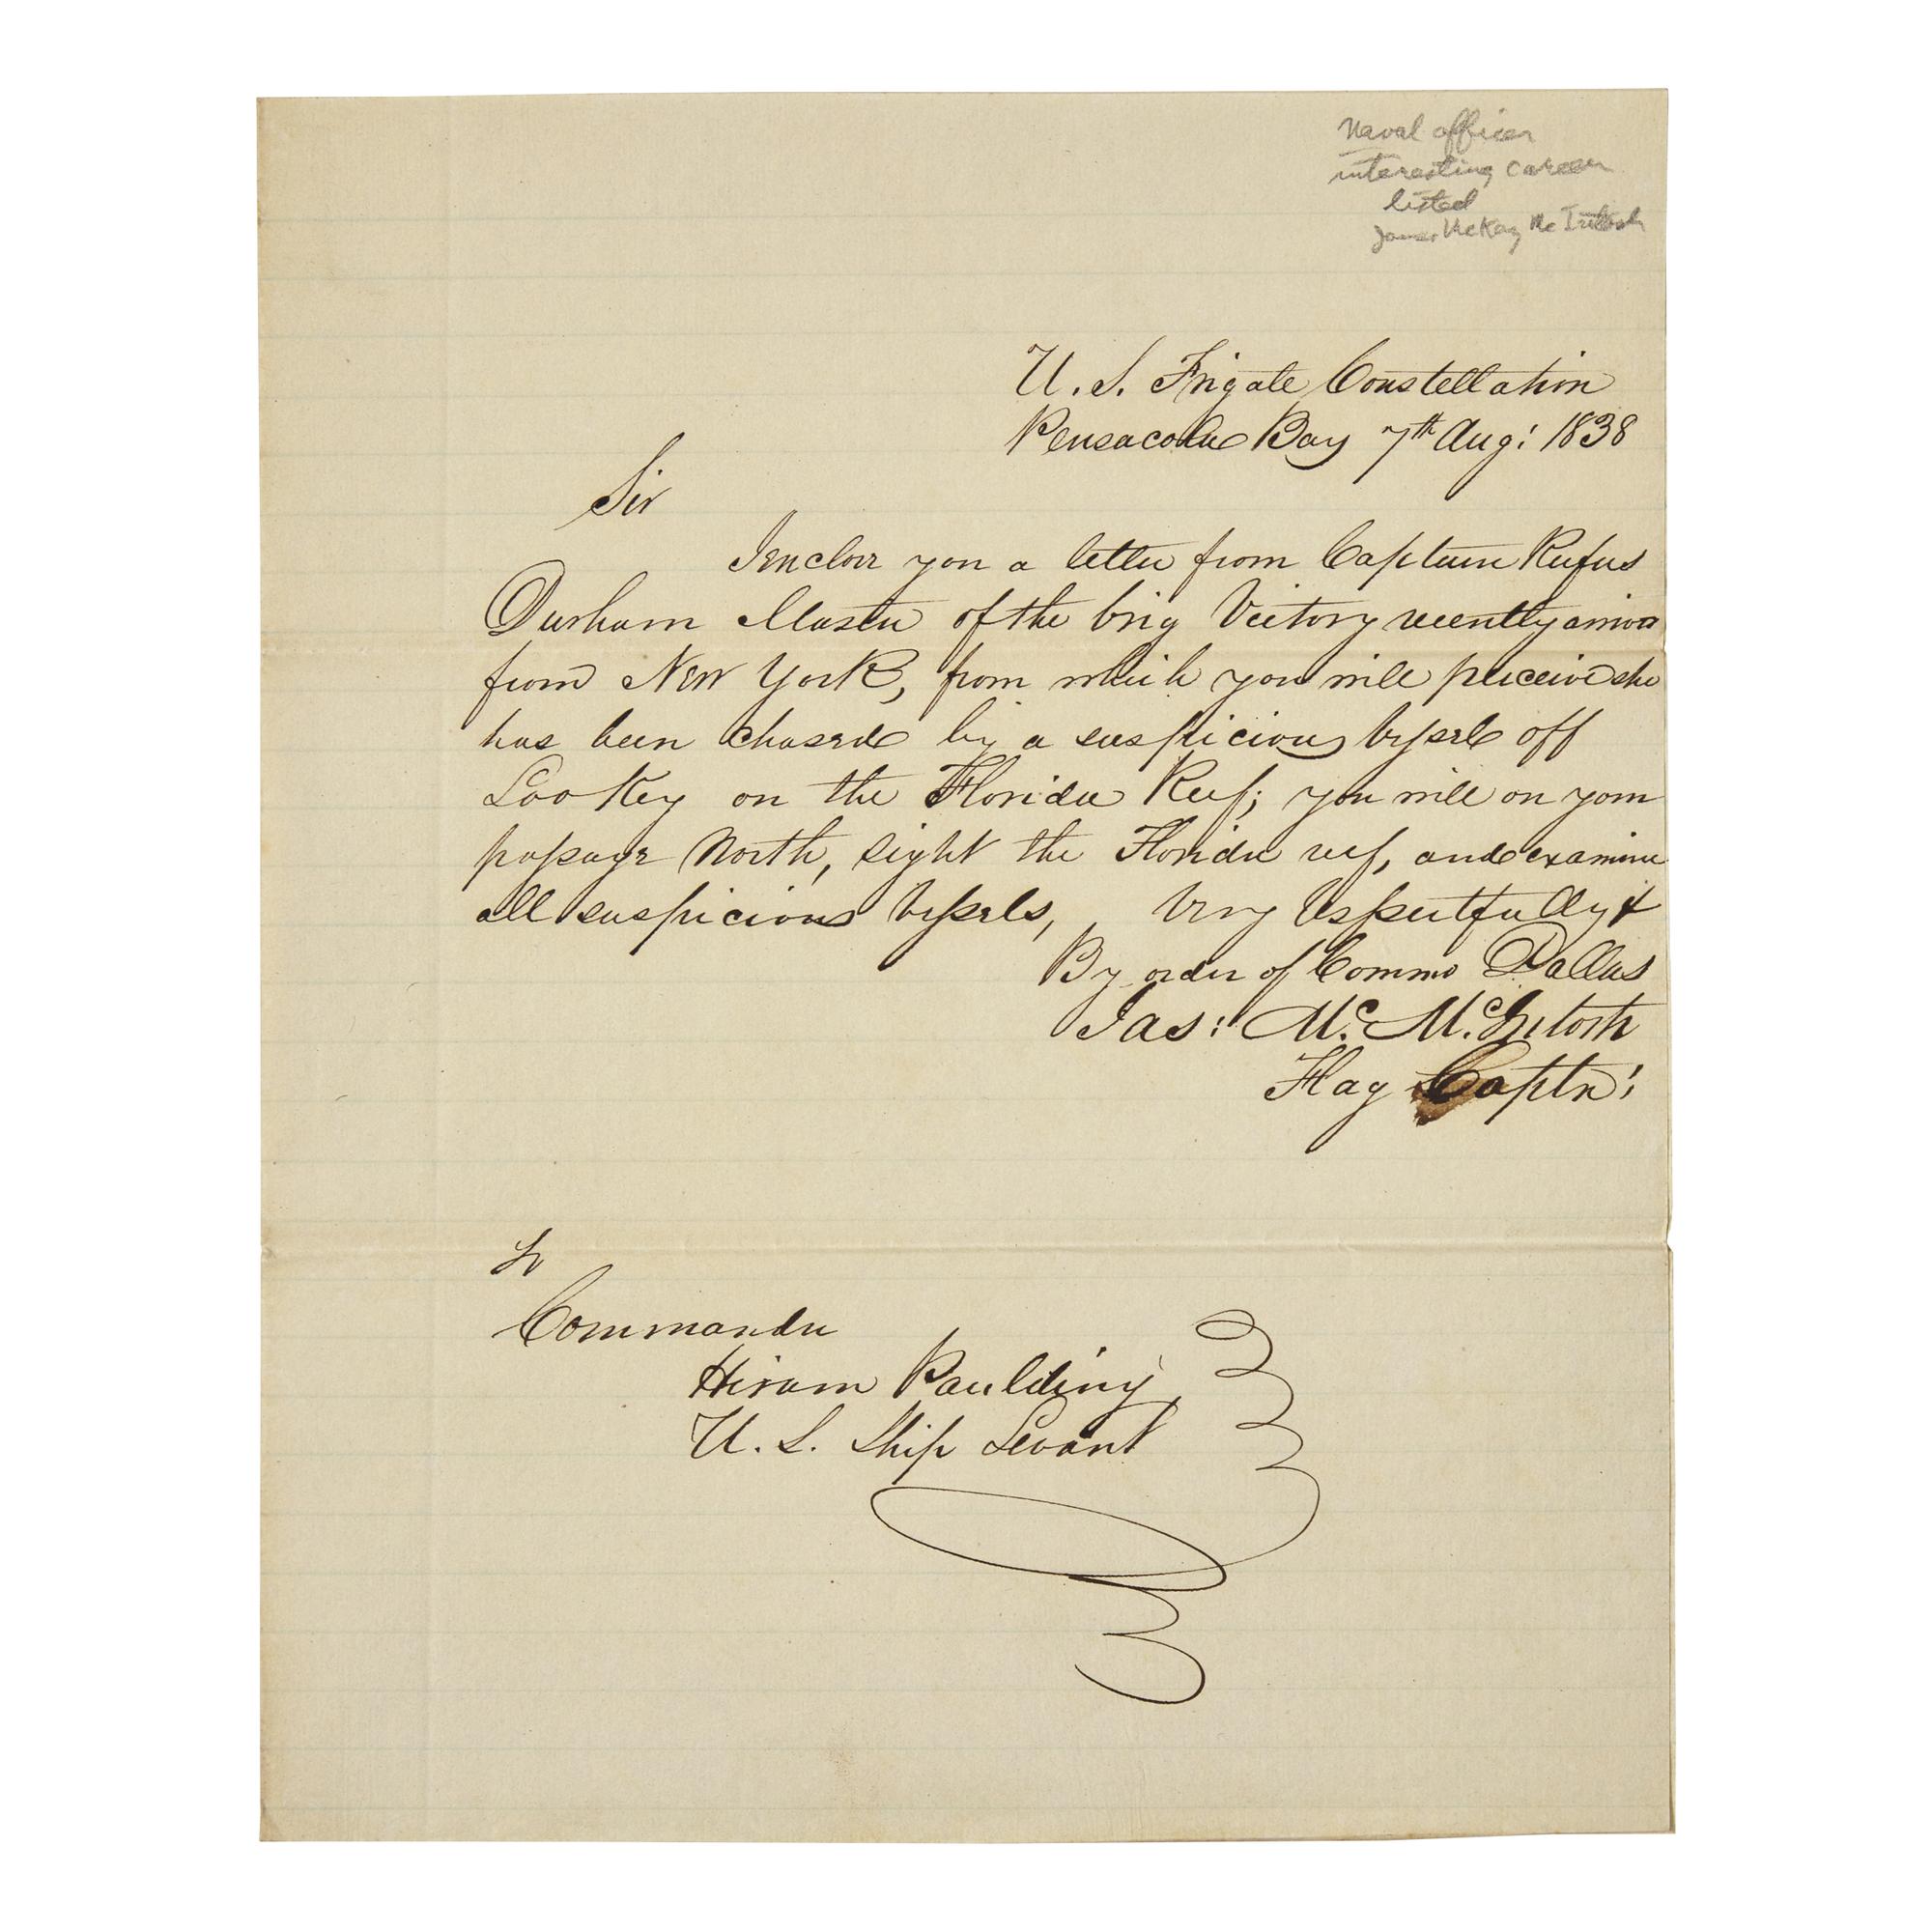 Naval officer
interesting career
listed
James McKay McIntosh
U. S. Frigate Constellation
Pensacola Bay 7th Aug: 1838
Sir
I enclose you a letter from Captain Rufus
Durham Master of the brig Victory recently arived
from New York, from which you will perceive she
has been chased by a suspicious vessel off
Loo Key on the Florida Reef; you will on your
passage North, sight the Florida reef, and examine
all suspicious vessels, Very Respectfully &
By order of Commo Dallas
Jas: Mc. McIntosh
Flag Captn:
To
Commander
Hiram Paulding
U. S. Ship Levant